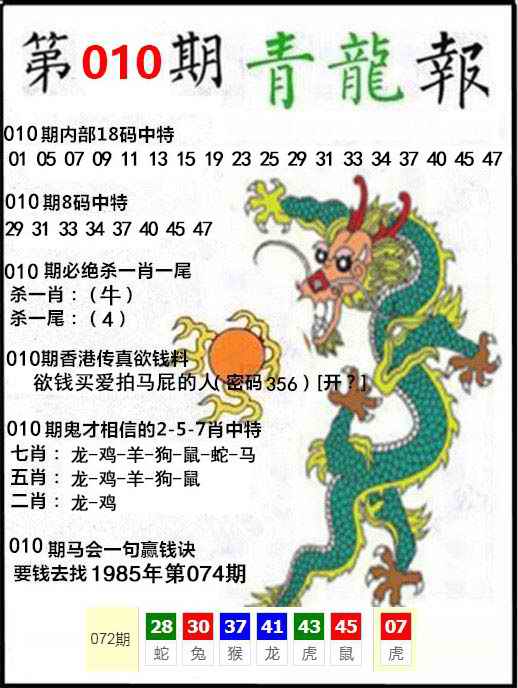 第010期青龍報
010期内部18码中特
01 05 07 09 11 13 15 19 23 25 29 31 33 34 37 40 45 47
010期8码中特
29 31 33 34 37 40 45 47
010 期必绝杀一肖一尾
杀一肖：（牛）
杀一尾：（4）
010期香港传真欲钱料
欲钱买爱拍马屁的人(密码356）[开？]
010期鬼才相信的2-5-7肖中特
七肖：龙-鸡-羊-狗-鼠-蛇-马
五肖：龙-鸡-羊-狗-鼠
二肖：龙-鸡
010期马会一句赢钱诀
要钱去找1985年第074期
072期 28 30 37 41 43 45 07
蛇 兔 猴 龙 虎 鼠 虎